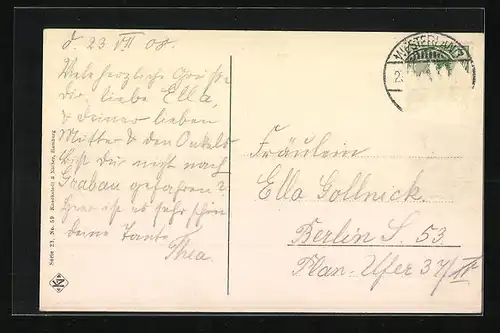 d. 23. VII 08.
Viele herzliche Grüße
dir, liebe Ella,
& deiner lieben
Mutter & den Onkels
Bist du nicht nach
Grabau gefahren?
Hier ist es sehr schön
deine Tante
Thea.
Serie 23, No. 59 Knackstedt & Näther, Hamburg
Fräulein
Ella Gollnick.
Berlin S. 53.
Plan-Ufer 37/II